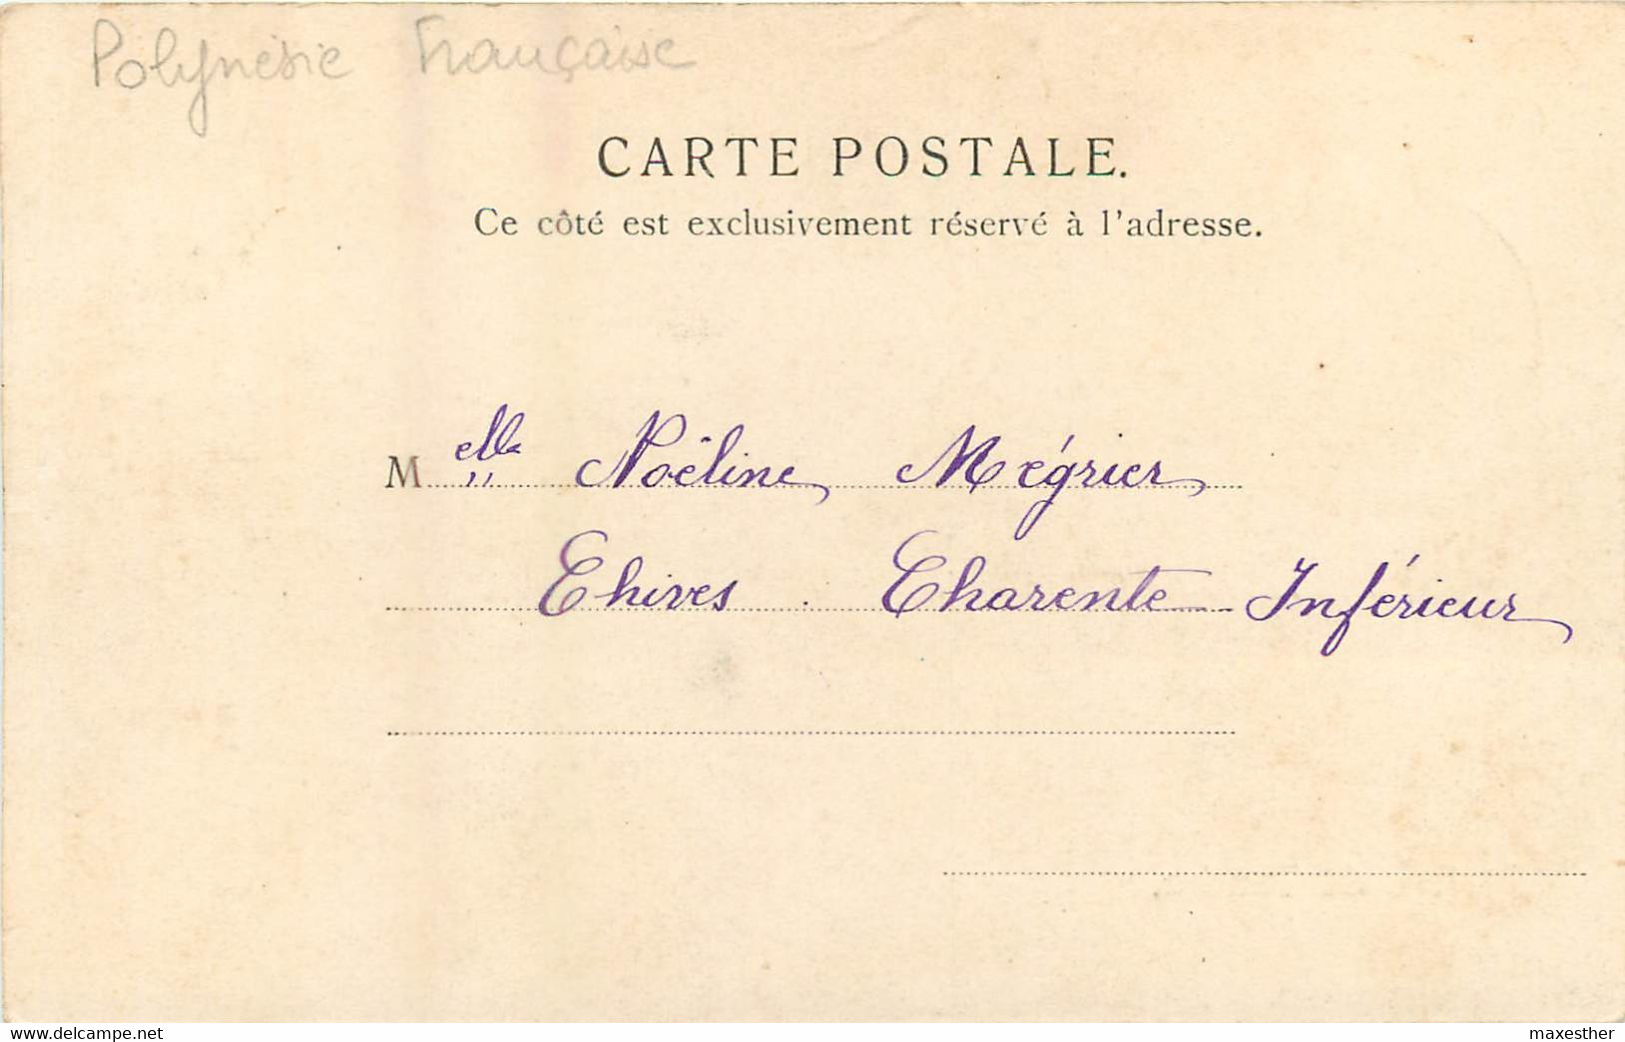 Polynésie Française
CARTE POSTALE.
Ce côté est exclusivement réservé à l'adresse.
Melle Noëline Mégrier
Chives. Charente Inférieur
delcampe.net
maxesther